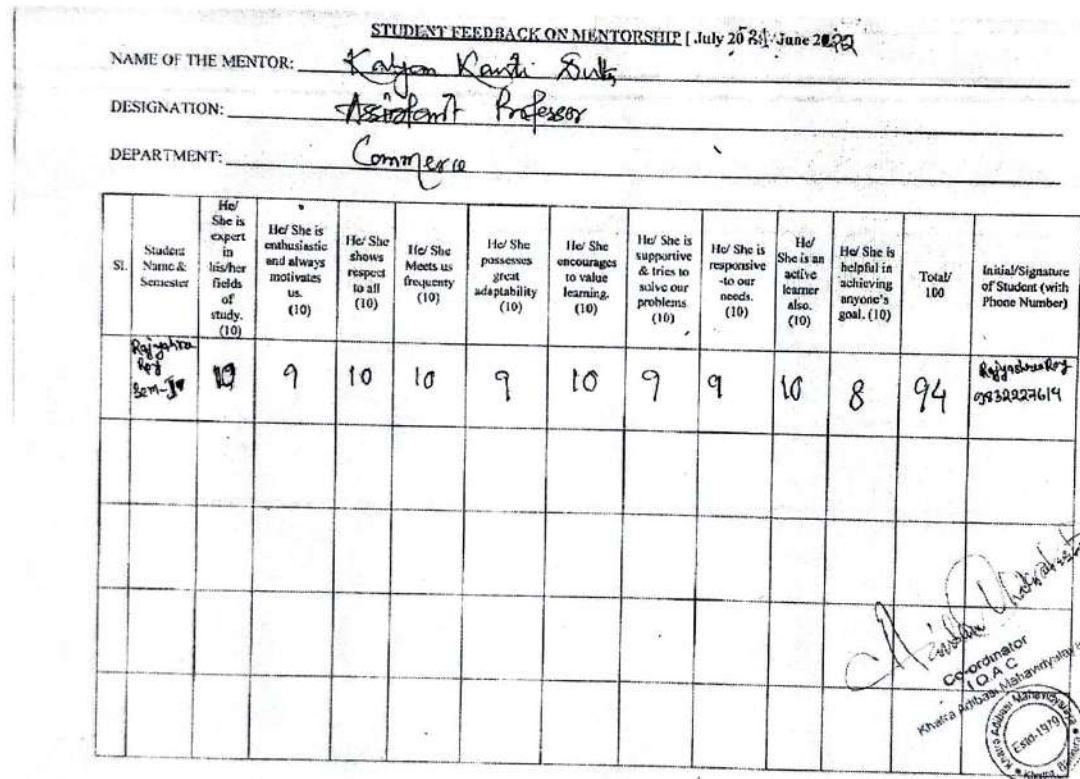 STUDENT FEEDBACK ON MENTORSHIP [ July 2021 - June 2022
NAME OF THE MENTOR: Kalyan Kanti Dutta
DESIGNATION: Assistant Professor
DEPARTMENT: Commerce
Sl.
Student
Name &
Semester
He/
She is
expert
in
his/her
fields
of
study.
(10)
He/ She is
enthusiastic
and always
motivates
us.
(10)
He/ She
shows
respect
to all
(10)
He/ She
Meets us
frequenty
(10)
He/ She
possesses
great
adaptability
(10)
He/ She
encourages
to value
learning.
(10)
He/ She is
supportive
& tries to
solve our
problems.
(10)
He/ She is
responsive
-to our
needs.
(10)
He/
She is an
active
learner
also.
(10)
He/ She is
helpful in
achieving
anyone's
goal. (10)
Total/
100
Initial/Signature
of Student (with
Phone Number)
Rajyashree
Roy
Sem-IV
10
9
10
10
9
10
9
9
10
8
94
Rajyashree Roy
9832227614
Co-ordinator
I Q A C
Khatra Adibasi Mahavidyalay
Khatra Adibasi Mahavidyalaya
Estd-1979